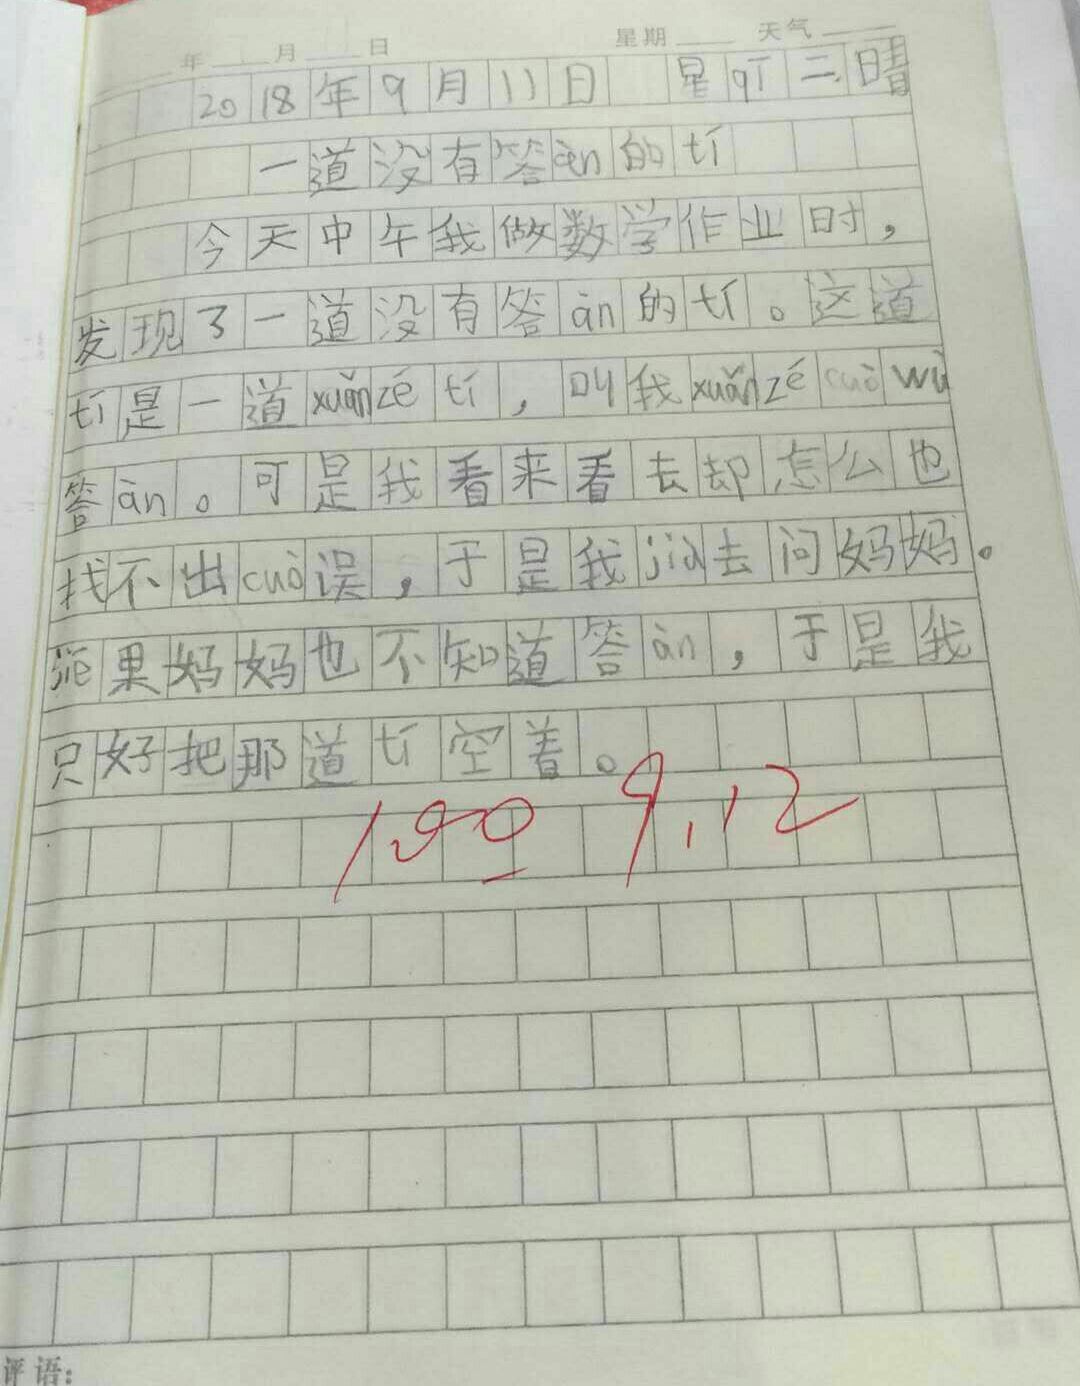 年 月 日 星期 天气
2018年9月11日 星qī二 晴
一道没有答àn的tí
今天中午我做数学作业时，
发现了一道没有答àn的tí。这道
tí是一道xuǎnzé tí，叫我xuǎnzé cuò wù
答àn。可是我看来看去却怎么也
找不出cuò误，于是我jiù去问妈妈。
jié果妈妈也不知道答àn，于是我
只好把那道tí空着。
100 9.12
评语：